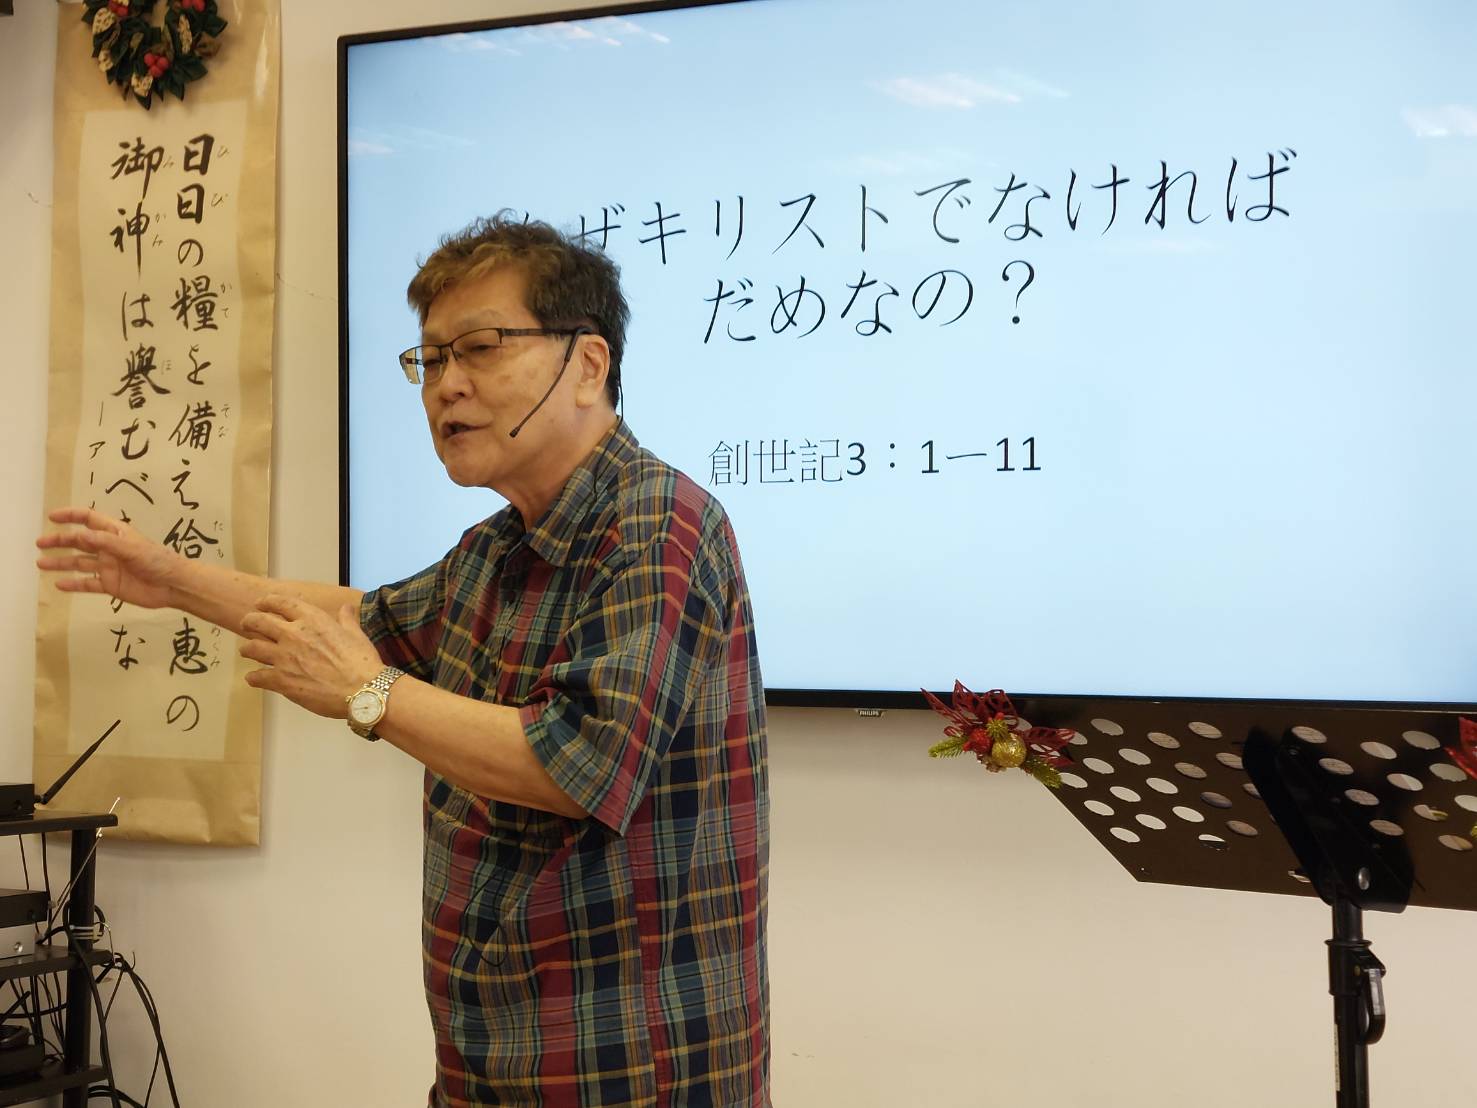 なぜキリストでなければ
だめなの？
創世記3：1ー11
日日の糧を備え給 恵の
御神は譽むべ かな
ーアー
PHILIPS